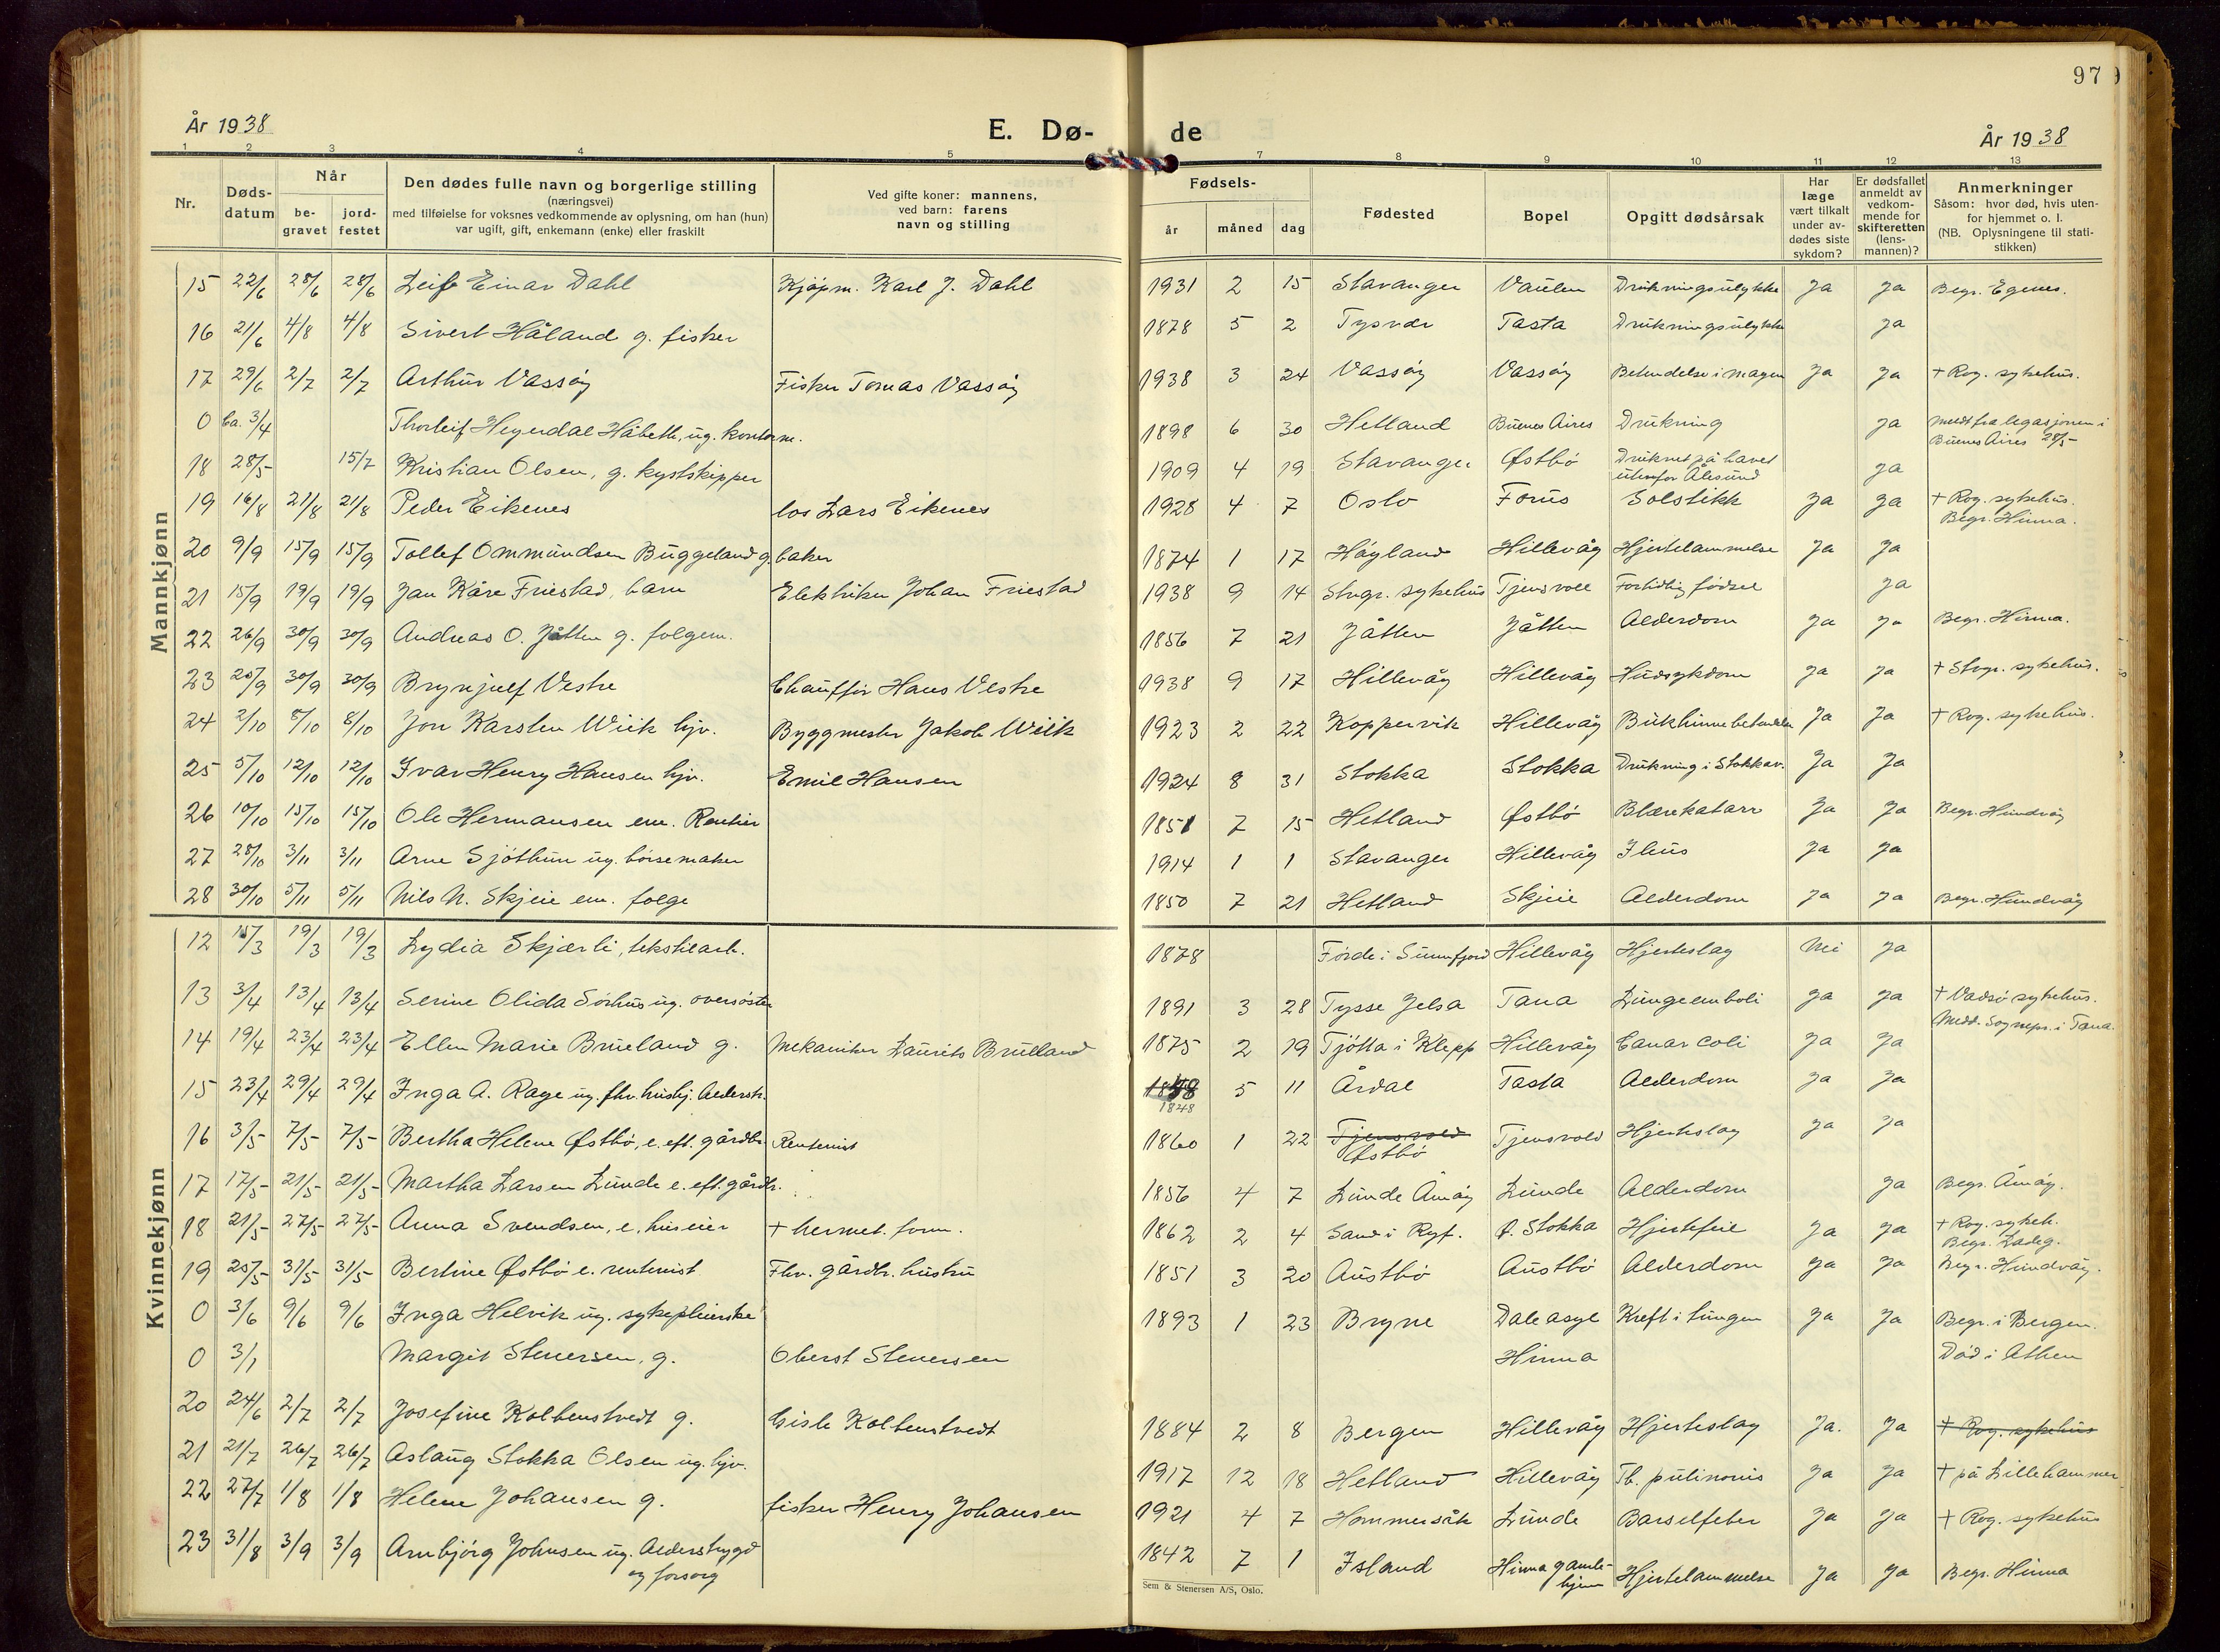 97
År 1938
E. Dø-
de
År 1938
1 2 3 4 5 7 8 9 10 11 12 13
Nr.
Døds-
datum
Når
be-
gravet
jord-
festet
Den dødes fulle navn og borgerlige stilling
(næringsvei)
med tilføielse for voksnes vedkommende av oplysning, om han (hun)
var ugift, gift, enkemann (enke) eller fraskilt
Ved gifte koner: mannens,
ved barn: farens
navn og stilling
Fødsels-
år måned dag
Fødested
Bopel
Opgitt dødsårsak
Har
læge
vært tilkalt
under av-
dødes siste
sykdom?
Er dødsfallet
anmeldt av
vedkom-
mende for
skifteretten
(lens-
mannen)?
Anmerkninger
Såsom: hvor død, hvis uten-
for hjemmet o. l.
(NB. Oplysningene til stati-
stikken)
Mannkjønn
15 22/6 28/6 28/6 Leif Einar Dahl Kjøpm. Karl J. Dahl 1931 2 15 Stavanger Vaulen Drukningsulykke Ja Ja Begr. Egenes.
16 21/6 4/8 4/8 Sivert Håland g. fisker 1878 5 2 Tysvær Tasta Drukningsulykke Ja
17 29/6 2/7 2/7 Arthur Vassøy Fisker Tomas Vassøy 1938 3 24 Vassøy Vassøy Betendelse i magen Ja Ja + Rog. sykehus.
0 Ca. 3/4 Thorleif Heyerdal Håbeth, ug. kontorm. 1898 6 30 Hetland Buenos Aires Drukning Ja Meldt fra legasjonen i
Buenos Aires 28/5
18 28/5 15/7 Kristian Olsen, g. kystskipper 1909 4 19 Stavanger Østbø Druknet på havet
utenfor Ålesund Ja
19 16/8 21/8 21/8 Peder Eikenes los Lars Eikenes 1928 4 7 Oslo Forus Solstikk Ja Ja + Rog. sykehus.
Begr. Hinna.
20 9/9 15/9 15/9 Tollef Ommundsen Buggeland g. baker 1874 1 17 Høyland Hillevåg Hjertelammelse Ja Ja
21 15/9 19/9 19/9 Jan Kåre Friestad, barn Elektriker Johan Friestad 1938 9 14 Stvgr. sykehus Tjensvoll Fortidlig fødsel Ja
22 26/9 30/9 30/9 Andreas O. Jåtten g. folgem. 1856 7 21 Jåtten Jåtten Alderdom Ja Ja Begr. Hinna.
23 25/9 30/9 30/9 Brynjulf Vestre Chauffør Hans Vestre 1938 9 17 Hillevåg Hillevåg Hudsykdom Ja Ja + Stvgr. sykehus.
24 2/10 8/10 8/10 Jon Karsten Wiik hjv. Byggmester Jakob Wiik 1923 2 22 Koppervik Hillevåg Bukhinnebetendelse Ja Ja + Rog. sykehus.
25 5/10 12/10 12/10 Ivar Henry Hansen hjv. Emil Hansen 1924 8 31 Stokka Stokka Drukning i Stokkav. Ja Ja
26 10/10 15/10 15/10 Ole Hermansen em. Rentier 1851 7 15 Hetland Østbø Blærekatarr Ja Ja Begr. Hundvåg
27 28/10 3/11 3/11 Arne Sjøthun ug. børsemaker 1914 1 1 Stavanger Hillevåg Ileus Ja Ja
28 30/10 5/11 5/11 Nils N. Skjeie em. folge 1850 7 21 Hetland Skjeie Alderdom Ja Ja Begr. Hundvåg
Kvinnekjønn
12 15/3 19/3 19/3 Lydia Skjærli, tekstilarb. 1878 Førde i Sunnfjord Hillevåg Hjerteslag Nei Ja
13 3/4 13/4 13/4 Serine Olida Sørhus ug. oversøster 1891 3 28 Tysse Jelsa Tana Lungeemboli Ja Ja + Vadsø sykehus.
Medd. Sognepr. i Tana.
14 19/4 23/4 23/4 Ellen Marie Brueland g. Mekaniker Laurits Brulland 1875 2 19 Tjøtta i Klepp Hillevåg Cancer coli Ja Ja
15 23/4 29/4 29/4 Inga A. Rage ug. fhv. hushj. Alderstr. 1848 5 11 Årdal Tasta Alderdom Ja Ja
1848
16 3/5 7/5 7/5 Bertha Helene Østbø, e. eft. gårdbr. Rentenist 1860 1 22 Tjensvold
Østbø Tjensvold Hjerteslag Ja Ja
17 17/5 21/5 21/5 Martha Larsen Lunde e. eft. gårdbr. 1856 4 7 Lunde Åmøy Lunde Alderdom Ja Begr. Åmøy.
18 21/5 27/5 27/5 Anna Svendsen, e. huseier + hermet. form. 1862 2 4 Sand i Ryf. Ø. Stokka Hjertefeil Ja Ja + Rog. sykeh.
Begr. Ladeg.
19 25/5 31/5 31/5 Bertine Østbø e. rentenist Fhv. gårdbr. hustru 1851 3 20 Austbø Austbø Alderdom Ja Ja Begr. Hundvåg.
0 3/6 9/6 9/6 Inga Helvik ug. sykepleierske 1893 1 23 Bryne Dale asyl Kreft i lungen Ja Ja Begr. i Bergen.
0 3/1 Margit Stenersen, g. Oberst Stenersen Hinna Død i Athen
20 24/6 2/7 2/7 Josefine Kolbenstvedt g. Gisle Kolbenstvedt 1884 2 8 Bergen Hillevåg Hjerteslag Ja. Ja + Rog. sykehus
21 21/7 26/7 26/7 Aslaug Stokka Olsen ug. hjv. 1917 12 18 Hetland Hillevåg Tb. pulmonis Ja Ja + på Lillehammer
22 27/7 1/8 1/8 Helene Johansen g. fisker Henry Johansen 1921 4 7 Hommersåk Lunde Barselfeber Ja Ja + Rog. sykehus
23 31/8 3/9 3/9 Arnbjørg Johnsen ug. Alderstrygd
og forsorg 1842 7 1 Island Hinna gamle-
hjem Hjertelammelse Ja Ja Begr. Hinna
Sem & Stenersen A/S, Oslo.